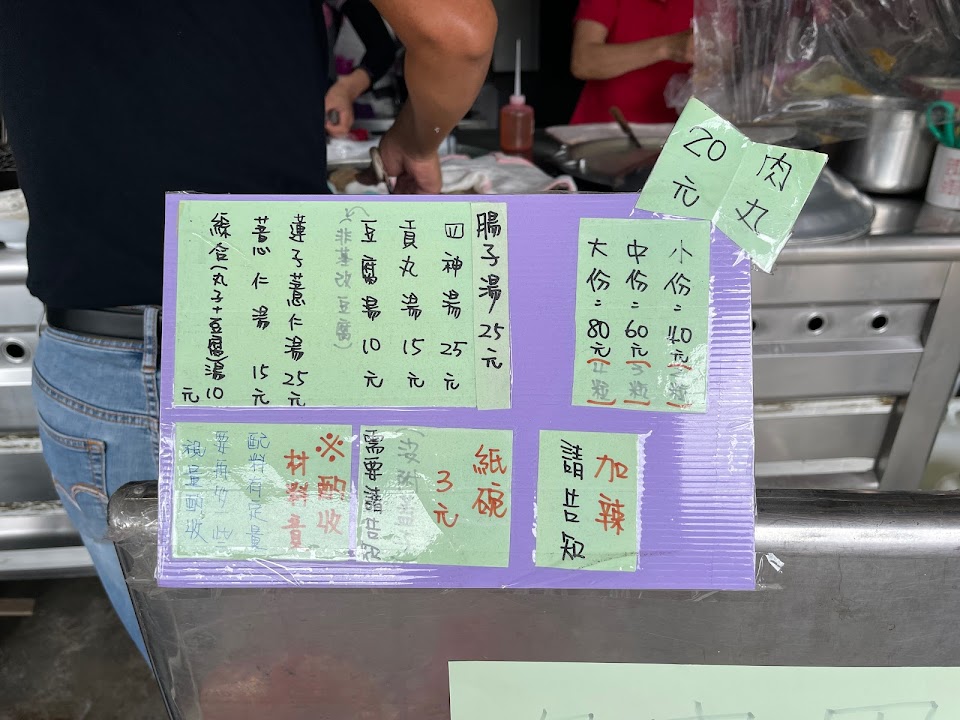 肉丸
20元
小份=40元
中份=60元3粒
大份=80元4粒
腸子湯25元
四神湯25元
貢丸湯15元
豆腐湯10元
(非基改豆腐)
蓮子薏仁湯25元
薏仁湯15元
綜合(丸子+豆腐)湯10元
加辣
請告知
紙碗
3元
需要請告知
※酌收
材料費
配料有定量
酌收